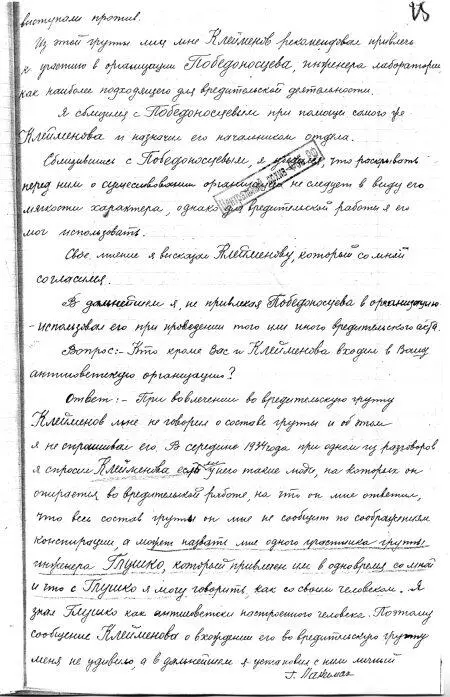 выступали против.
25
Из этой группы лиц мне Клейменов рекомендовал привлечь
к участию в организации Победоносцева, инженера лаборатории
как наиболее подходящего для вредительской деятельности.
Я сблизился с Победоносцевым при помощи самого же
Клейменова и назначил его начальником отдела.
Сблизившись с Победоносцевым, я увидел, что раскрывать
перед ним о существовании организации не следует в виду его
мягкости характера, однако для вредительской работы я его
мог использовать.
Свое мнение я высказал Клейменову, который со мной
согласился.
В дальнейшем я, не привлекая Победоносцева в организацию
- использовал его при проведении того или иного вредительского акта.
Вопрос:- Кто кроме Вас и Клейменова входил в Вашу
антисоветскую организацию?
Ответ:- При вовлечении во вредительскую группу
Клейменов мне не говорил о составе группы и об этом
я не спрашивал его. В середине 1934 года при одном из разговоров
я спросил Клейменова есть ли у него такие люди, на которых он
опирается во вредительской работе, на что он мне ответил,
что весь состав группы он мне не сообщит по соображениям
конспирации а может назвать мне одного участника группы
инженера Глушко, который привлечен им в одно время со мной
и что с Глушко я могу говорить, как со своим человеком. Я
знал Глушко как антисоветски настроенного человека. Поэтому
сообщение Клейменова о вхождении его во вредительскую группу
меня не удивило, а в дальнейшем я установил с ним личный
Г. Лангемак